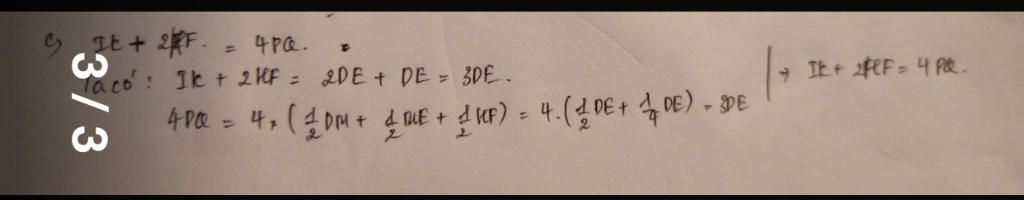 c) IK + 2KF. = 4PQ.
Ta có: IK + 2KF = 2DE + DE = 3DE.
4PQ = 4. (1/2 DM + 1/2 ME + 1/2 KF) = 4.(1/2 DE + 1/4 DE) = 3DE
→ IK + 2KF = 4PQ.
3/3